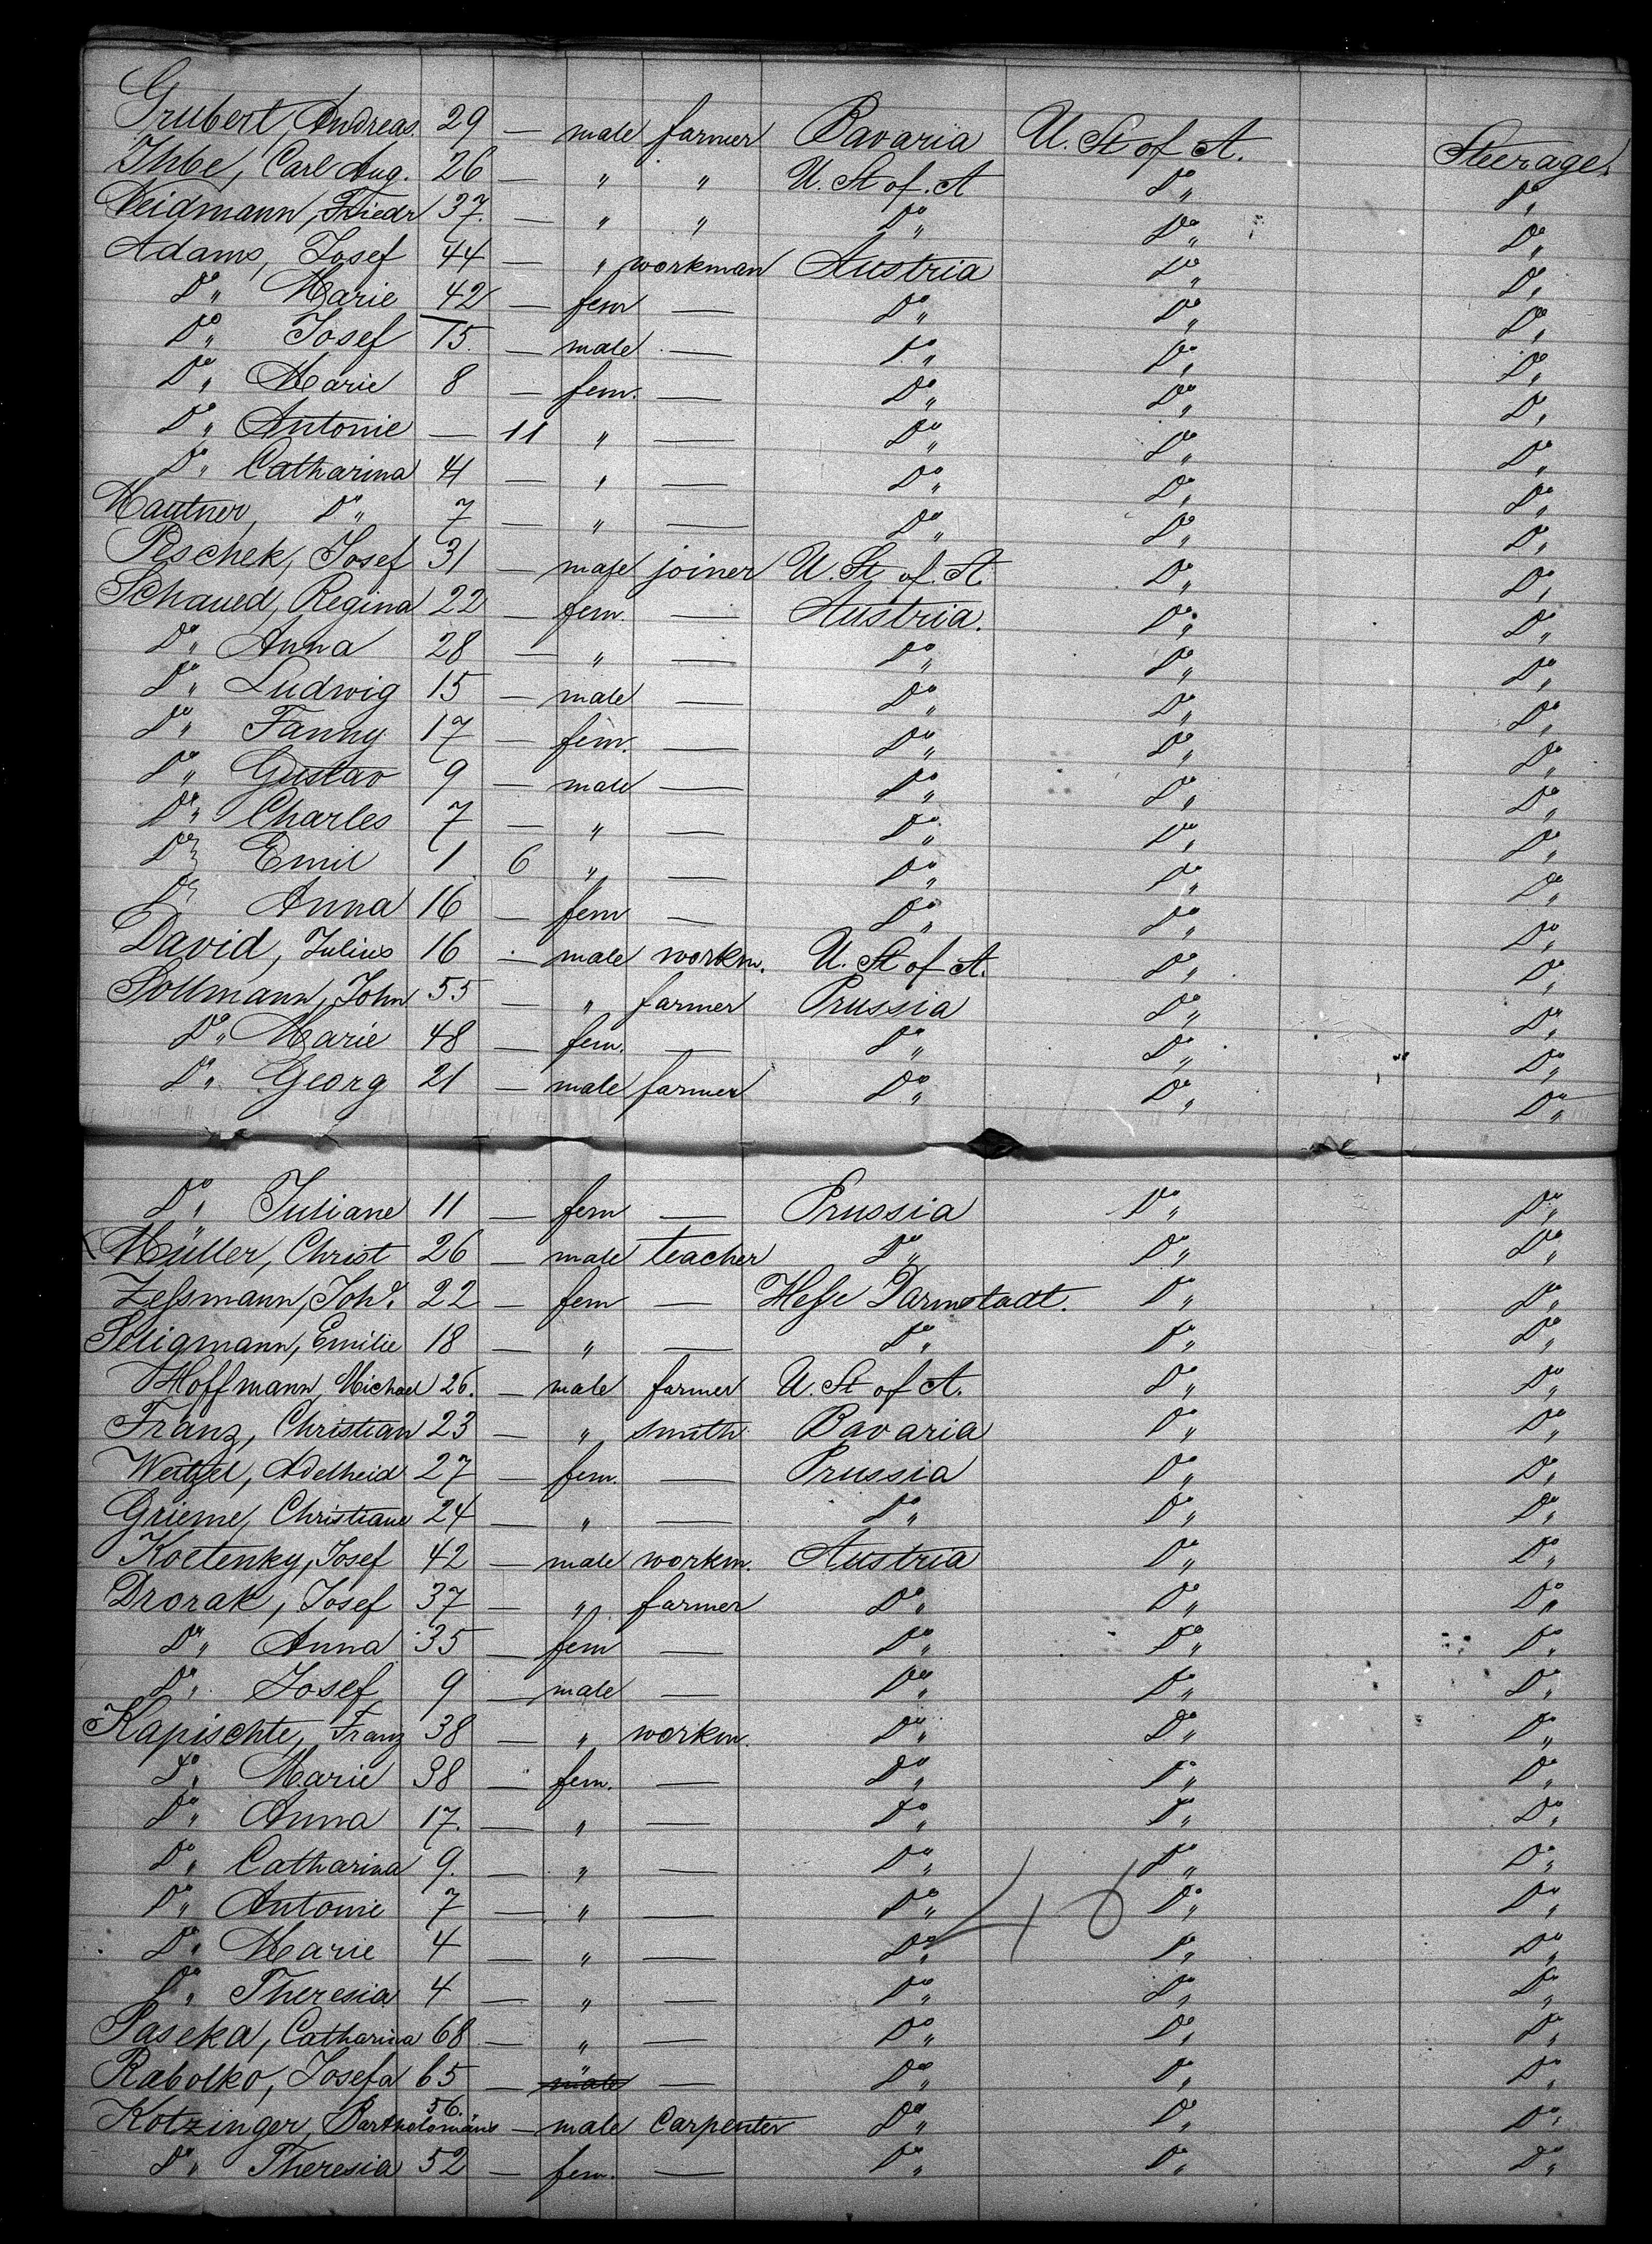 Grubert, Andreas 29 — male farmer Bavaria U. St of A. Steerage.
Ihbe, Carl Aug. 26 — " " U. St of. A Do " Do "
Weidmann, Friedr 37. — " " Do " Do " Do "
Adams, Josef 44 — " workman Austria Do " Do "
Do " Marie 42 — fem — Do " Do " Do "
Do " Josef 15. — male — Do " Do " Do "
Do " Marie 8 — fem. — Do " Do " Do "
Do " Antonie — 11 " — Do " Do " Do "
Do " Catharina 41 — " — Do " Do " Do "
Mautner, Do " 7 — " — Do " Do " Do "
Peschek, Josef 31 — male joiner U. St of. A. Do " Do "
Schaued, Regina 22 — fem. — Austria. Do " Do "
Do " Anna 28 — " — Do " Do " Do "
Do " Ludwig 15 — male — Do " Do " Do "
Do " Fanny 17 — fem. — Do " Do " Do "
Do " Gustav 9 — male — Do " Do " Do "
Do " Charles 7 — " — Do " Do " Do "
Do " Emil 1 6 " — Do " Do " Do "
Do " Anna 16 — fem — Do " Do " Do "
David, Julius 16 — male workm. U. St of A. Do " Do "
Sollmann, John 55 — " farmer Prussia Do " Do "
Do " Marie 48 — fem. — Do " Do " Do "
Do " Georg 21 — male farmer Do " Do " Do "
Do " Juliane 11 — fem — Prussia Do " Do "
Müller, Christ 26 — male teacher Do " Do " Do "
Zessmann, Joha. 22 — fem — Hesse Darmstadt. Do " Do "
Seligmann, Emilie 18 — " — Do " Do " Do "
Hoffmann, Michael 26. — male farmer U. St of A. Do " Do "
Franz, Christian 23 — " smith Bavaria Do " Do "
Weitzel, Adelheid 27 — fem. — Prussia Do " Do "
Grieme, Christiane 24 — " — Do " Do " Do "
Koetenky, Josef 42 — male workm. Austria Do " Do "
Drorak, Josef 37 — " farmer Do " Do " Do "
Do " Anna 35 — fem — Do " Do " Do "
Do " Josef 9 — male — Do " Do " Do "
Kapischte, Franz 38 — " workm. Do " Do " Do "
Do " Marie 38 — fem. — Do " Do " Do "
Do " Anna 17. — " — Do " Do " Do "
Do " Catharina 9. — " — Do " Do " Do "
Do " Antonie 7 — " — Do " Do " Do "
Do " Marie 4 — " — Do " Do " Do "
46
Do " Theresia 4 — " — Do " Do " Do "
Paseka, Catharina 68 — " — Do " Do " Do "
Rabolko, Josefa 65 — " male — Do " Do " Do "
Kotzinger, Bartholomäus 56. — male Carpenter Do " Do " Do "
Do " Theresia 52 — fem. — Do " Do " Do "